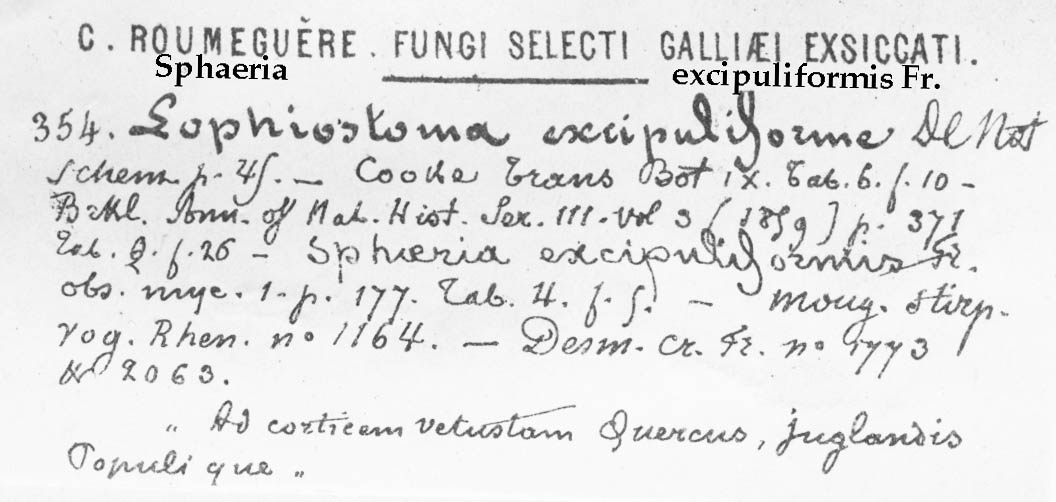 C. ROUMEGUÈRE. FUNGI SELECTI GALLIÆI EXSICCATI.
Sphaeria excipuliformis Fr.
354. Lophiostoma excipuliforme De Not
Schem p. 45. — Cooke Trans Bot IX. Tab. 6. f. 10 -
Brkl. Ann. of Nat. Hist. Ser. III. vol 3 (1859) p. 371
Tab. 9. f. 26 - Sphæria excipuliformis Fr.
obs. myc. 1. p. 177. Tab. 4. f. 5. — Moug. Stirp.
Vog. Rhen. no 1164. — Desm. Cr. Fr. no 1773
& 2063.
„ Ad corticem vetustam Quercus, Juglandis
Populi que „